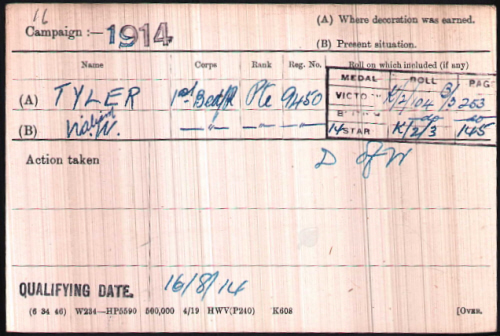 Campaign :— 1914
(A) Where decoration was earned.
(B) Present situation.
Name Corps Rank Reg. No. Roll on which included (if any)
MEDAL ROLL PAGE
(A) TYLER 1st Bedf R Pte 9450
VICTO Y K/2/104 B3 263
(B) W. —"— —"— —"—
B do do
14 STAR K/2/3 145
Action taken
D of W
QUALIFYING DATE. 16/8/14
(6 34 46) W234—HP5590 500,000 4/19 HWV(P240) K608 [OVER.